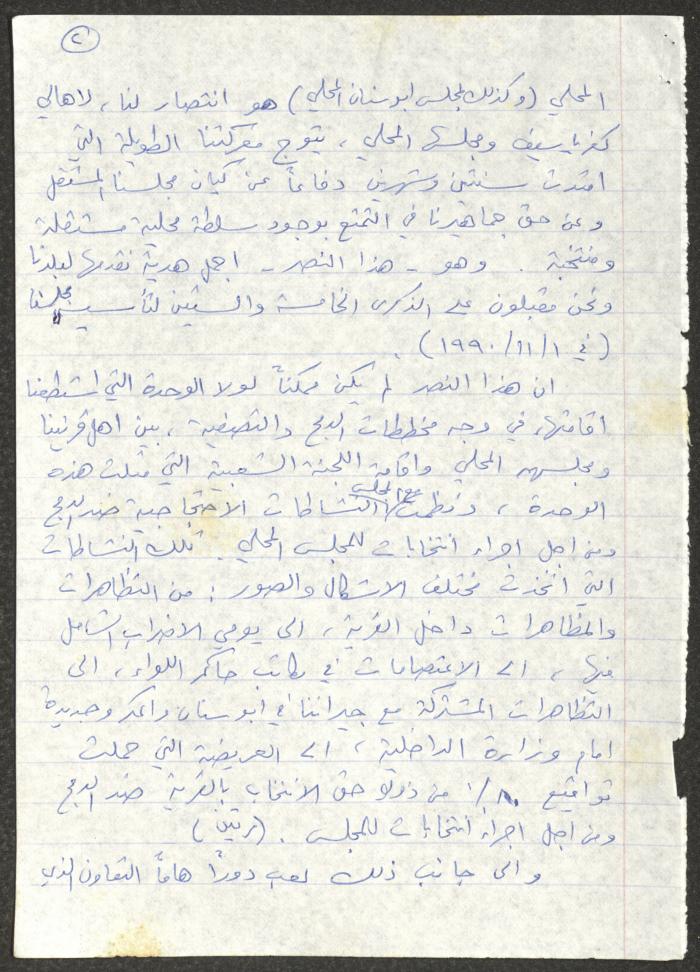 ٢
المحلي (وكذلك لمجلس ابوسنان المحلي) هو انتصار لنا، لاهالي
كفرياسيف ومجلسها المحلي، يتوج معركتنا الطويلة التي
امتدت سنتين وشهرين دفاعاً عن كيان مجلسنا المستقل
وعن حق جماهيرنا في التمتع بوجود سلطة محلية مستقلة
ومنتخبة. وهو - هذا النصر - اجمل هدية نقدمها لبلدنا
ونحن مقبلون على الذكرى الخامسة والستين لتأسيس مجلسنا
(في ١/١١/١٩٩٠).
ان هذا النصر لم يكن ممكناً لولا الوحدة التي استطعنا
اقامتها، في وجه مخططات الدمج والتصفية، بين اهل قريتنا
ومجلسهم المحلي واقامة اللجنة الشعبية التي مثلت هذه
الوحدة، ونظمت مع المجلس النشاطات الاحتجاجية ضد الدمج
ومن اجل اجراء انتخابات للمجلس المحلي. تلك النشاطات
التي اتخذت مختلف الاشكال والصور: من التظاهرات
والمظاهرات داخل القرية، الى يومي الاضراب الشامل
فيها، الى الاعتصامات في مكاتب حاكم اللواء، الى
التظاهرات المشتركة مع جيراننا في ابوسنان والمكر وجديدة
امام وزارة الداخلية، الى العريضة التي حملت
تواقيع ٨٠٪ من ذوي حق الانتخاب بالقرية ضد الدمج
ومن اجل اجراء انتخابات للمجلس. (مرتين)
والى جانب ذلك لعب دوراً هاماً التعاون الذي